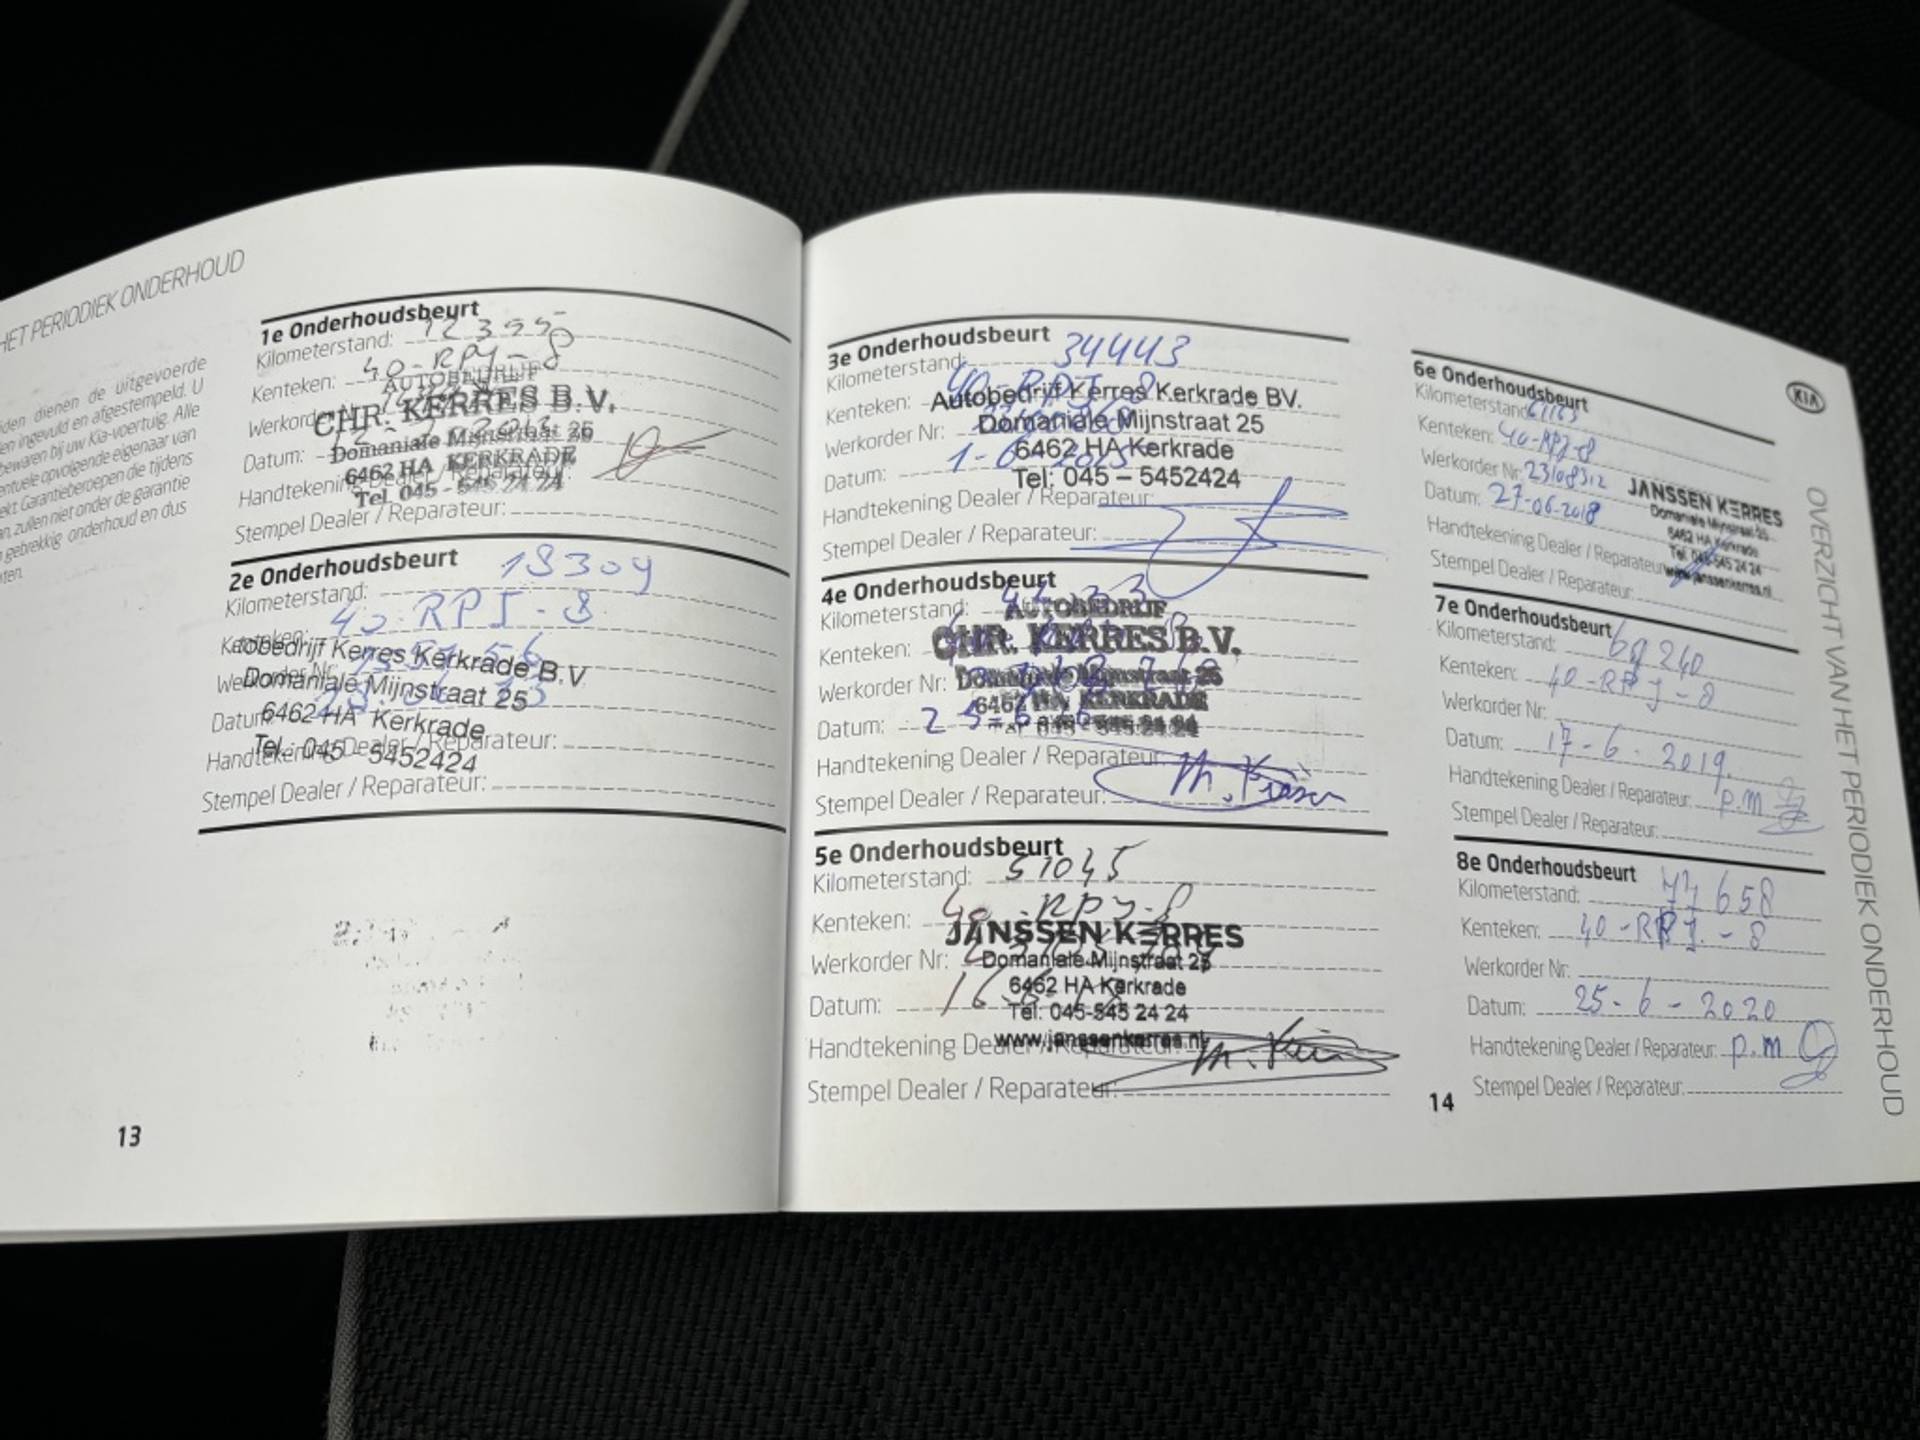 HET PERIODIEK ONDERHOUD
dienen de uitgevoerde
en ingevuld en afgestempeld. U
bewaren bij uw Kia-voertuig. Alle
eventuele opvolgende eigenaar van
Garantieberoepen die tijdens
zullen niet onder de garantie
gebrekkig onderhoud en dus
1e Onderhoudsbeurt
Kilometerstand:
Kenteken: 40-RPJ-8
AUTOBEDRIJF
CHR. KERRES B.V.
Werkorder
Domaniale Mijnstraat 25
Datum:
6462 HA KERKRADE
Handtekening Dealer / Reparateur:
Tel. 045 - 545 24 24
Stempel Dealer / Reparateur:
2e Onderhoudsbeurt
Kilometerstand: 18309
Kenteken: 40-RPJ-8
Kerres Kerkrade B.V
Werkorder Nr:
Domaniale Mijnstraat 25
Datum:
6462 HA Kerkrade
Handtekening Dealer / Reparateur:
Tel. 045 - 5452424
Stempel Dealer / Reparateur:
13
3e Onderhoudsbeurt
Kilometerstand: 34443
Kenteken: 40-RPJ-8
Autobedrijf Kerres Kerkrade BV.
Werkorder Nr:
Domaniale Mijnstraat 25
6462 HA Kerkrade
Datum: 1-6-2015
Tel: 045 – 5452424
Handtekening Dealer / Reparateur:
Stempel Dealer / Reparateur:
4e Onderhoudsbeurt
Kilometerstand:
AUTOBEDRIJF
Kenteken:
CHR. KERRES B.V.
Werkorder Nr:
Domaniale Mijnstraat 25
6462 HA KERKRADE
Datum:
Handtekening Dealer / Reparateur:
Stempel Dealer / Reparateur:
5e Onderhoudsbeurt
Kilometerstand: 51045
Kenteken: 40-RPJ-8
JANSSEN KERRES
Werkorder Nr:
Domaniale Mijnstraat 25
6462 HA Kerkrade
Datum:
Tel: 045-545 24 24
www.janssenkerres.nl
Handtekening Dealer / Reparateur:
Stempel Dealer / Reparateur:
14
KIA
6e Onderhoudsbeurt
Kilometerstand: 61163
Kenteken: 40-RPJ-8
Werkorder Nr: 23108312
JANSSEN KERRES
Domaniale Mijnstraat 25
Datum: 27-06-2018
6462 HA Kerkrade
Tel. 045-545 24 24
Handtekening Dealer / Reparateur:
www.janssenkerres.nl
Stempel Dealer / Reparateur:
7e Onderhoudsbeurt
Kilometerstand: 69240
Kenteken: 40-RPJ-8
Werkorder Nr:
Datum: 17-6-2019.
Handtekening Dealer / Reparateur: p.m
Stempel Dealer / Reparateur:
8e Onderhoudsbeurt
Kilometerstand: 77658
Kenteken: 40-RPJ-8
Werkorder Nr:
Datum: 25-6-2020
Handtekening Dealer / Reparateur: p.m
Stempel Dealer / Reparateur:
OVERZICHT VAN HET PERIODIEK ONDERHOUD